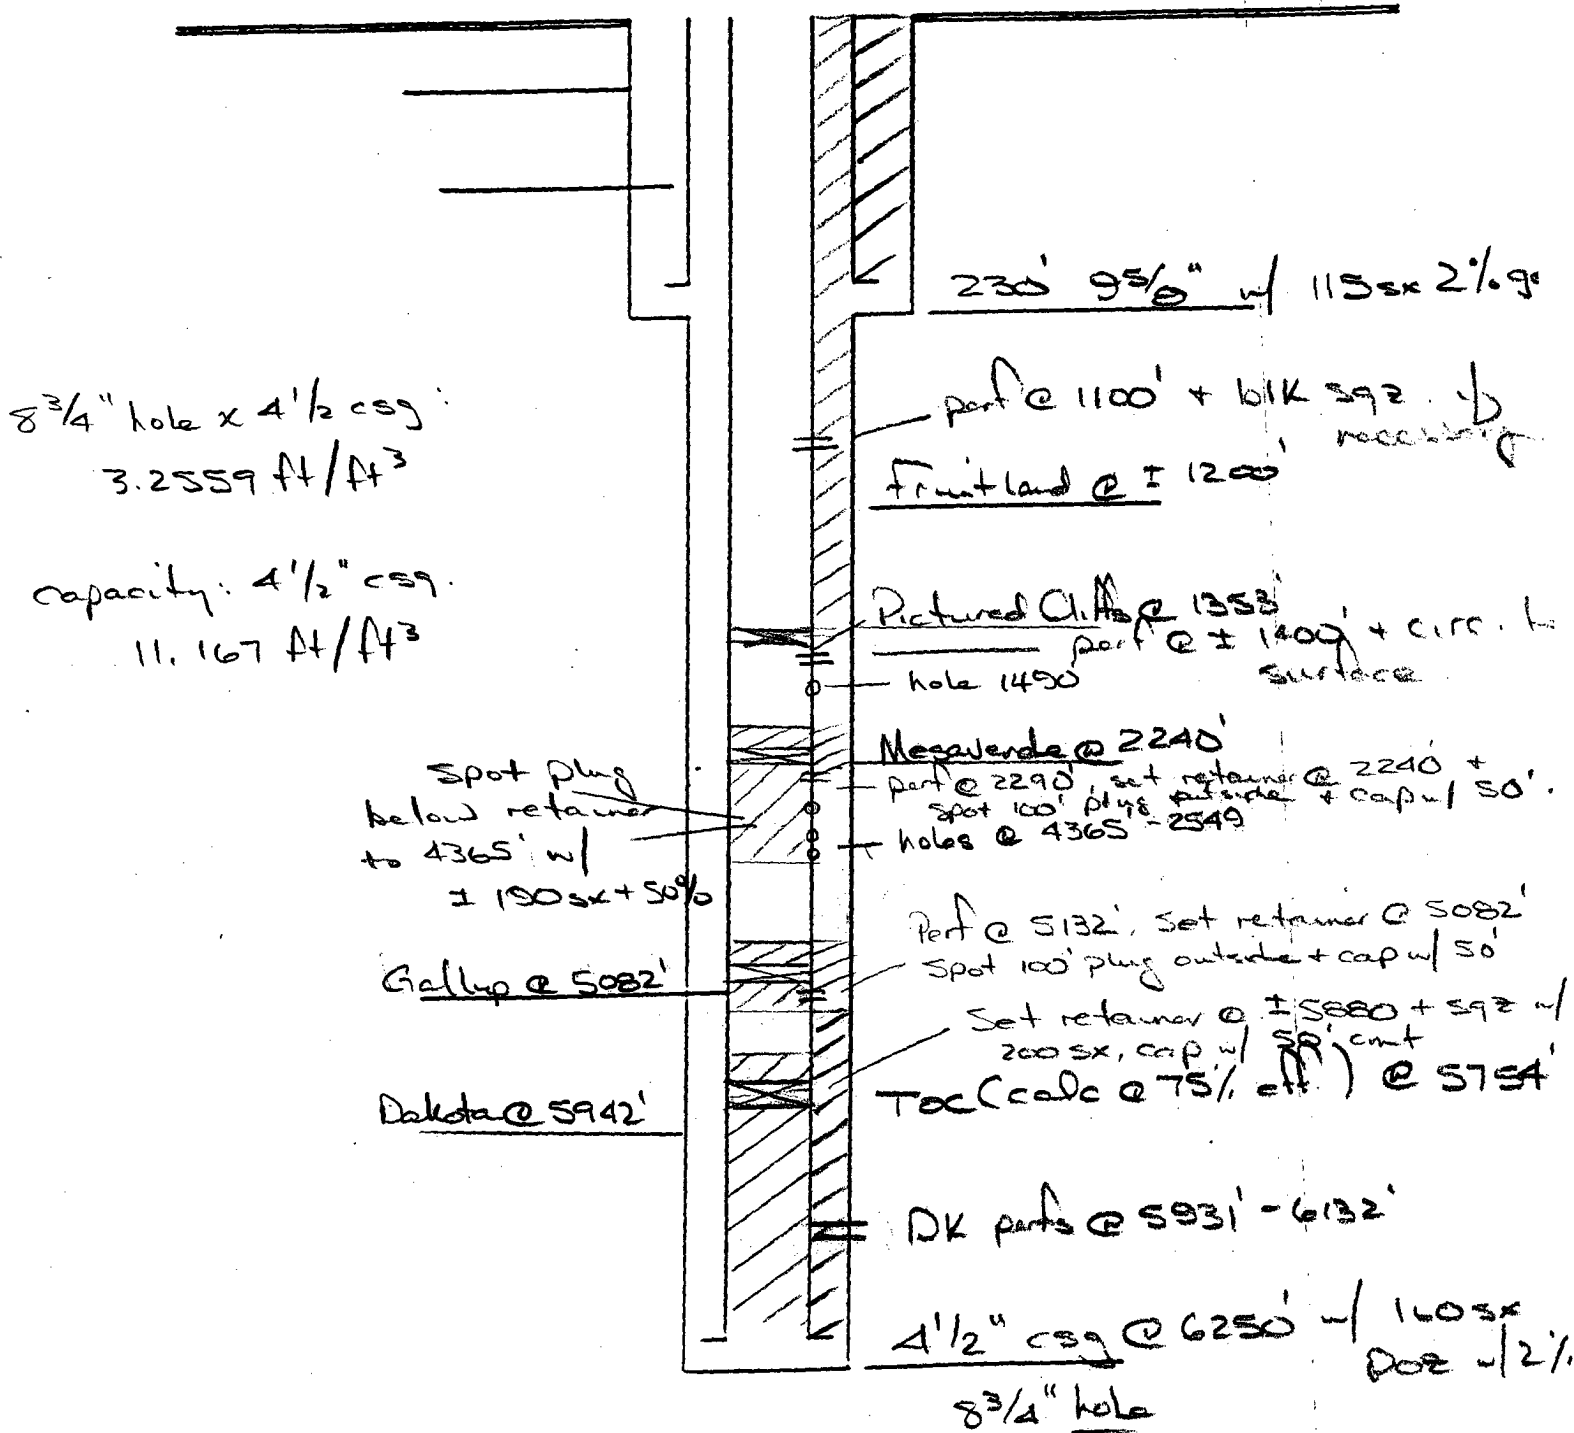 230' 9 5/8" w/ 115 sx 2% ge
8 3/4" hole x 4 1/2 csg:
3.2559 ft/ft³
perf @ 1100' + blk sqz. if
necessary
Fruitland @ ± 1200'
capacity: 4 1/2" csg.
11.167 ft/ft³
Pictured Cliffs @ 1353'
perf @ ± 1400' + circ. to
surface
hole 1490'
Mesaverde @ 2240'
perf @ 2290', set retainer @ 2240 +
spot 100' plug outside + cap w/ 50'.
holes @ 4365'-2549
spot plug
below retainer
to 4365' w/
± 190 sx + 50%
Perf @ 5132', Set retainer @ 5082'
Spot 100' plug outside + cap w/ 50'
Gallup @ 5082'
Set retainer @ ± 5880 + sqz w/
200 sx, cap w/ 50' cmt
TOC (calc @ 75% eff) @ 5754'
Dakota @ 5942'
DK perfs @ 5931' - 6132'
4 1/2" csg @ 6250' w/ 160 sx
Poz w/ 2%
8 3/4" hole